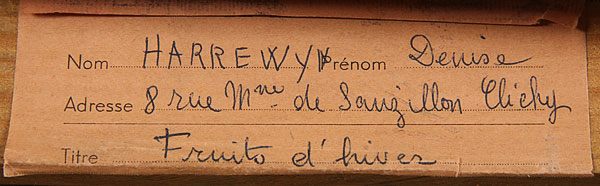 Nom HARREWYN Prénom Denise
Adresse 8 rue Mme de Sanzillon Clichy
Titre Fruits d'hiver